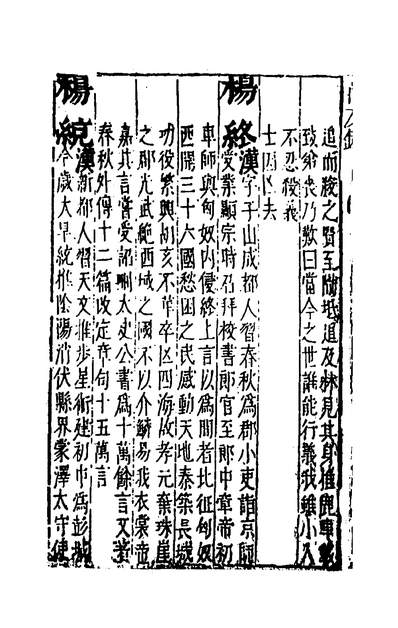 追而殺之賢至隴坻追及林見其身推鹿車載
致弟喪乃歎曰當今之世誰能行義我雖小人
不忍殺義
士因亡去
楊終漢字子山成都人習春秋為郡小吏詣京師
受業顯宗時召拜校書郎官至郎中章帝初
車師與匈奴內侵終上言以為間者北征匈奴
西開三十六國愁困之民感動天地秦築長城
功役繁興胡亥不革卒亡四海故孝元棄珠崖
之郡光武絕西域之國不以介鱗易我衣裳帝
嘉其言嘗受詔刪太史公書為十萬餘言又著
春秋外傳十二篇改定章句十五萬言
楊統漢新都人習天文推步星術建初中為彭城
令歲大旱統推陰陽消伏縣界蒙澤太守使